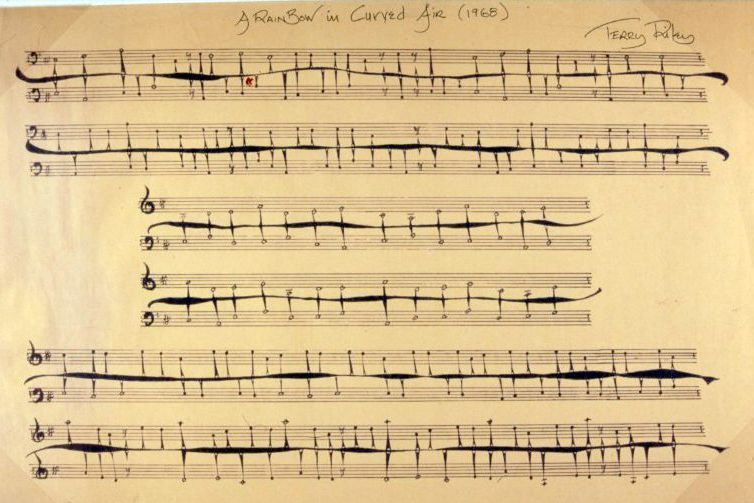 A RAINBOW in Curved Air (1968)
Terry Riley